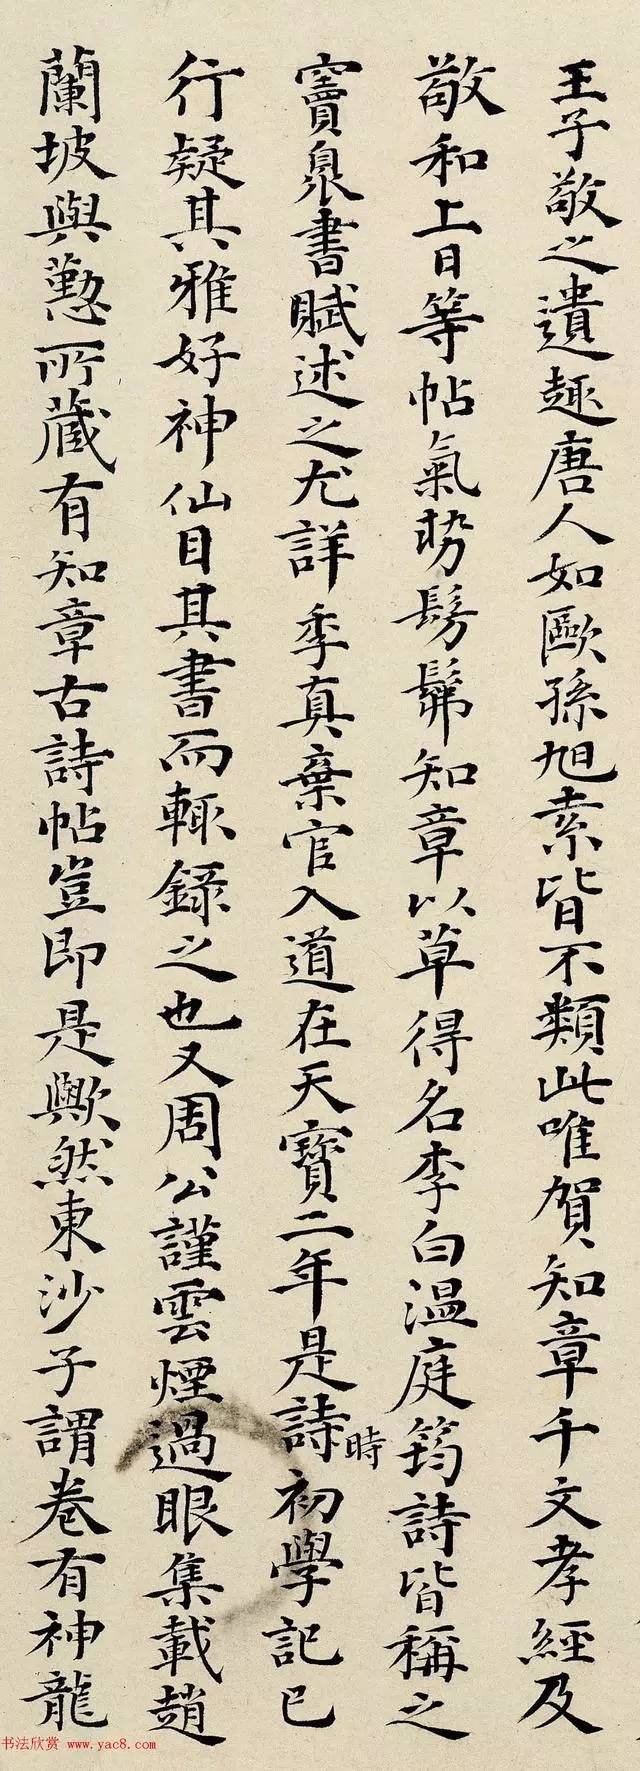 王子敬之遺趣唐人如歐孫旭素皆不類此唯賀知章千文孝經及
敬和上日等帖氣勢髣髴知章以草得名李白溫庭筠詩皆稱之
竇臮書賦述之尤詳季真棄官入道在天寶二年是詩時初學記已
行疑其雅好神仙目其書而輒錄之也又周公謹雲煙過眼集載趙
蘭坡與懃所藏有知章古詩帖豈即是歟然東沙子謂卷有神龍
书法欣赏 www.yac8.com